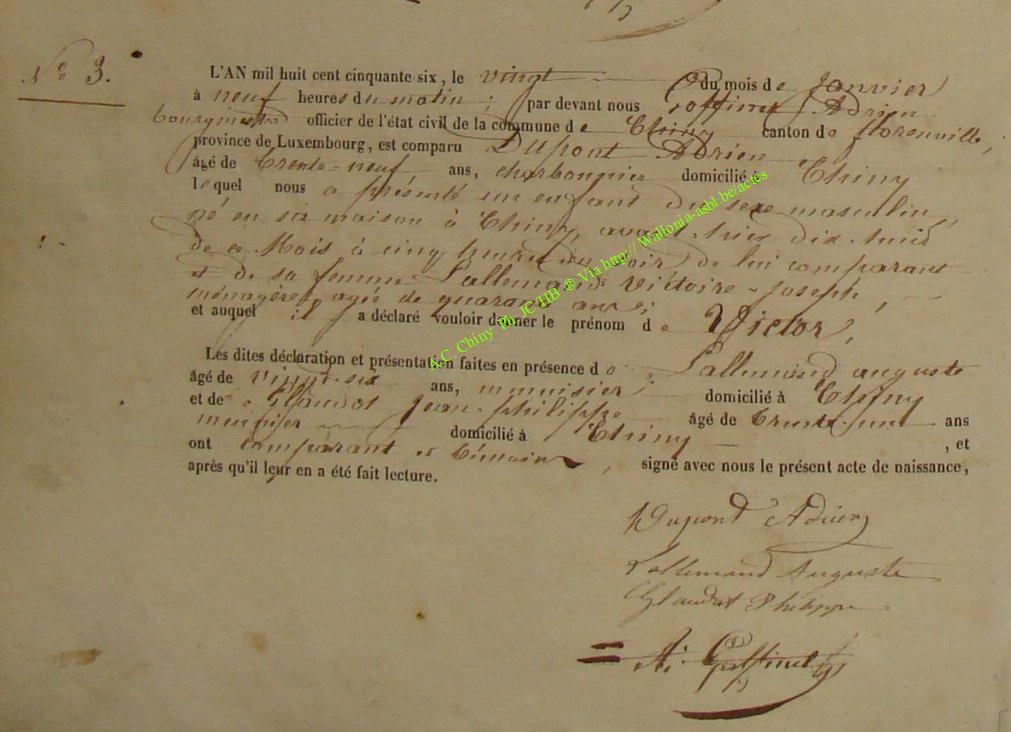 No 3.
L'AN mil huit cent cinquante six, le vingt du mois de Janvier
à neuf heures du matin ; par devant nous Goffinet Adrien
bourgmestre officier de l'état civil de la commune de Chiny canton de florenville,
province de Luxembourg, est comparu Dupont Adrien
âgé de trente-neuf ans, charbonnier domicilié à Chiny
lequel nous a présenté un enfant du sexe masculin,
né en sa maison à Chiny, avant hier dix-huit
de ce Mois à cinq heures du soir de lui comparant
et de sa femme Lallemand Victoire-Joseph,
ménagère, agée de quarante ans ;
et auquel il a déclaré vouloir donner le prénom de Victor,
Les dites déclaration et présentation faites en présence de Lallemand auguste
âgé de vingt-six ans, menuisier domicilié à Chiny
et de Glaudot Jean-philippe âgé de trente-neuf ans
meunier domicilié à Chiny , et
ont comparant et témoins, signé avec nous le présent acte de naissance,
après qu'il leur en a été fait lecture.
Dupont Adrien
Lallemand Auguste
Glaudot Philippe
A. Goffinet
A.C Chiny Ph JC/HB ® Via http// Wallonia-asbl.be/actes